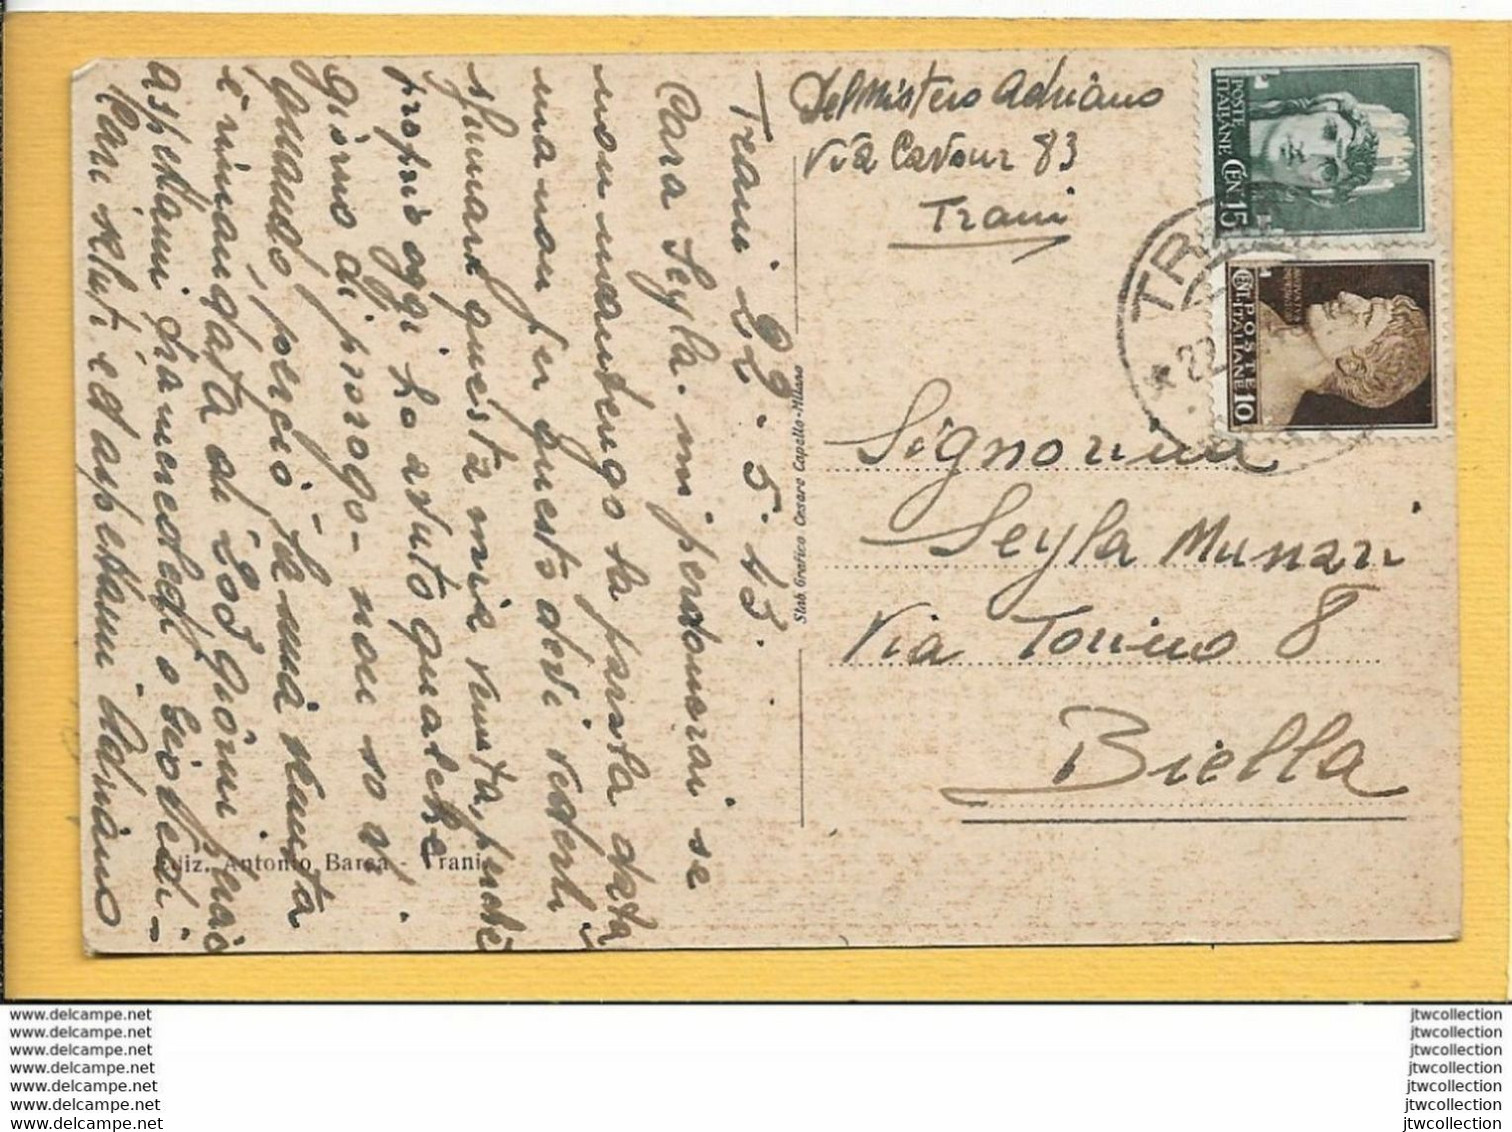 Del Mistero Adriano
Via Cavour 83
Trani
POSTE ITALIANE
CENT. 15
POSTE ITALIANE
CENT. 10
TR
22
Signorina
Seyla Munari
Via Torino 8
Biella
Stab. Grafico Cesare Capello-Milano
Trani 22-5-43.
Cara Seyla. mi perdonerai se
non mantengo la parola data
ma non fu questo devi vederti
sfumare questa mia venuta, perché
proprio oggi ho avuto qualche
giorno di proroga - non so di
quando, perciò la mia venuta
è rimandata di 2 o 3 giorni
aspettami o Giovedì -
Cari saluti ed aspettami Adriano
Ediz. Antonio Barca - Trani
www.delcampe.net
www.delcampe.net
www.delcampe.net
www.delcampe.net
www.delcampe.net
www.delcampe.net
www.delcampe.net
jtwcollection
jtwcollection
jtwcollection
jtwcollection
jtwcollection
jtwcollection
jtwcollection